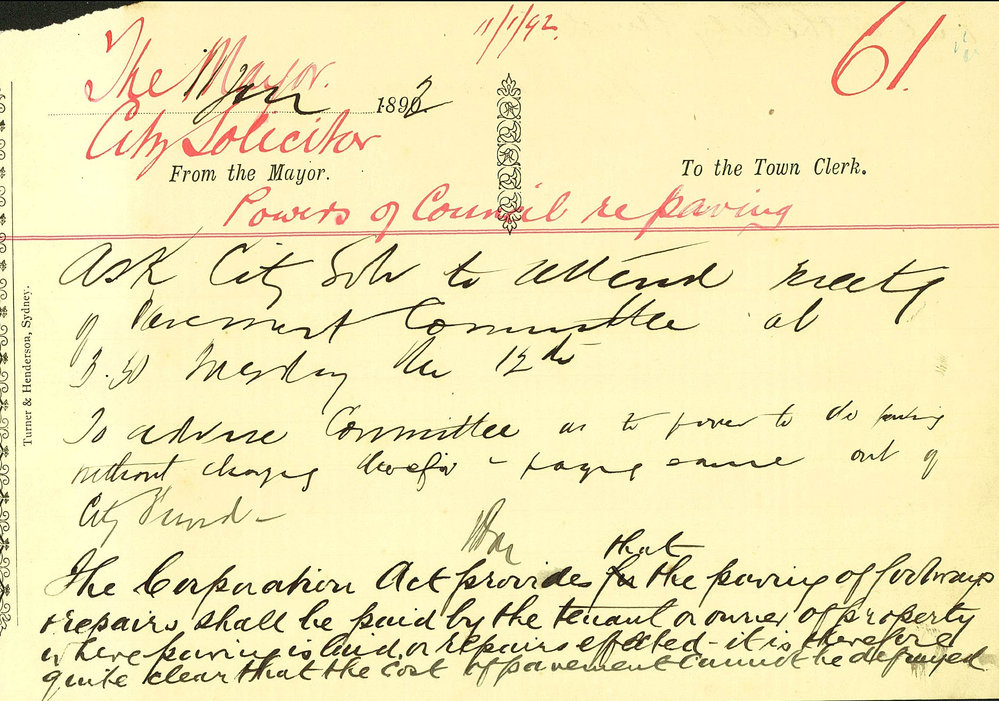 11/1/92.
61.
The Mayor.
11 Jan 1892
City Solicitor
From the Mayor.
To the Town Clerk.
Powers of Council re paving
Ask City Solr to attend meetg
of Pavement Committee at
3.30 Tuesday the 12th
To advise Committee as to power to do paving
without charging therefor - paying same out of
City Fund -
The Corporation Act provides that the paving of footways
& repairs shall be paid by the tenant or owner of property
where paving is laid or repairs effected - it is therefore
quite clear that the cost of pavement cannot be defrayed
Turner & Henderson, Sydney.